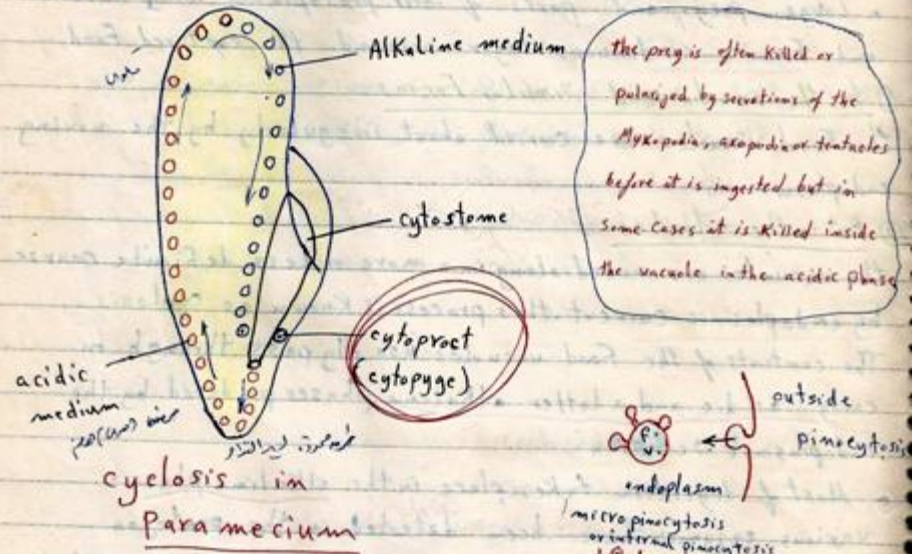 Alkaline medium
cytostome
cytoproct
(cytopyge)
acidic
medium
cyclosis in
Paramecium
the prey is often killed or
polarized by secretions of the
Myxopodia, axopodia or tentacles
before it is ingested but in
some cases it is killed inside
the vacuole in the acidic phase
outside
pinocytosis
f.
v.
endoplasm
micropinocytosis
or internal pinocytosis